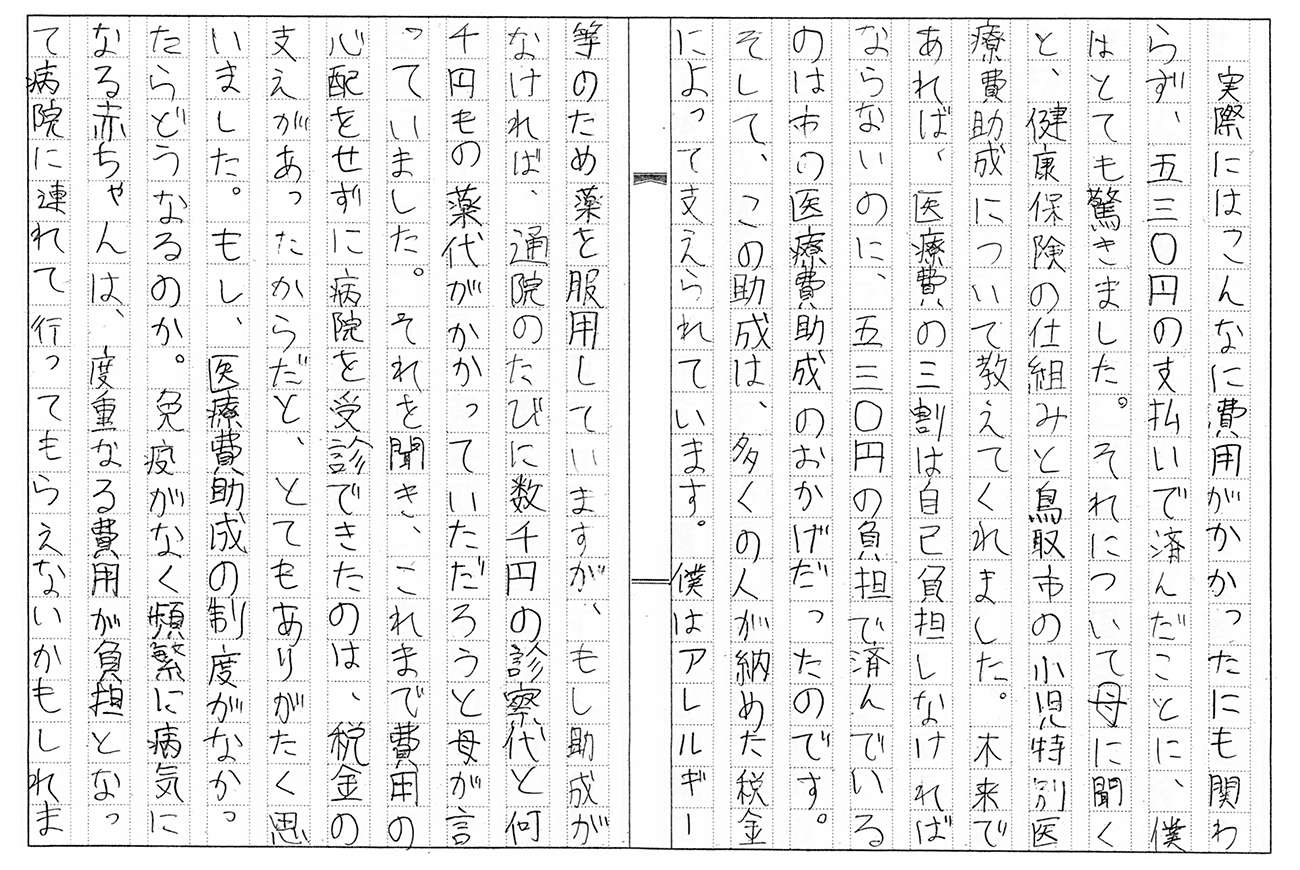 実際にはこんなに費用がかかったにも関わ
らず、五三〇円の支払いで済んだことに、僕
はとても驚きました。それについて母に聞く
と、健康保険の仕組みと鳥取市の小児特別医
療費助成について教えてくれました。本来で
あれば、医療費の三割は自己負担しなければ
ならないのに、五三〇円の負担で済んでいる
のは市の医療費助成のおかげだったのです。
そして、この助成は、多くの人が納めた税金
によって支えられています。僕はアレルギー
等のため薬を服用していますが、もし助成が
なければ、通院のたびに数千円の診察代と何
千円もの薬代がかかっていただろうと母が言
っていました。それを聞き、これまで費用の
心配をせずに病院を受診できたのは、税金の
支えがあったからだと、とてもありがたく思
いました。もし、医療費助成の制度がなかっ
たらどうなるのか。免疫がなく頻繁に病気に
なる赤ちゃんは、度重なる費用が負担となっ
て病院に連れて行ってもらえないかもしれま